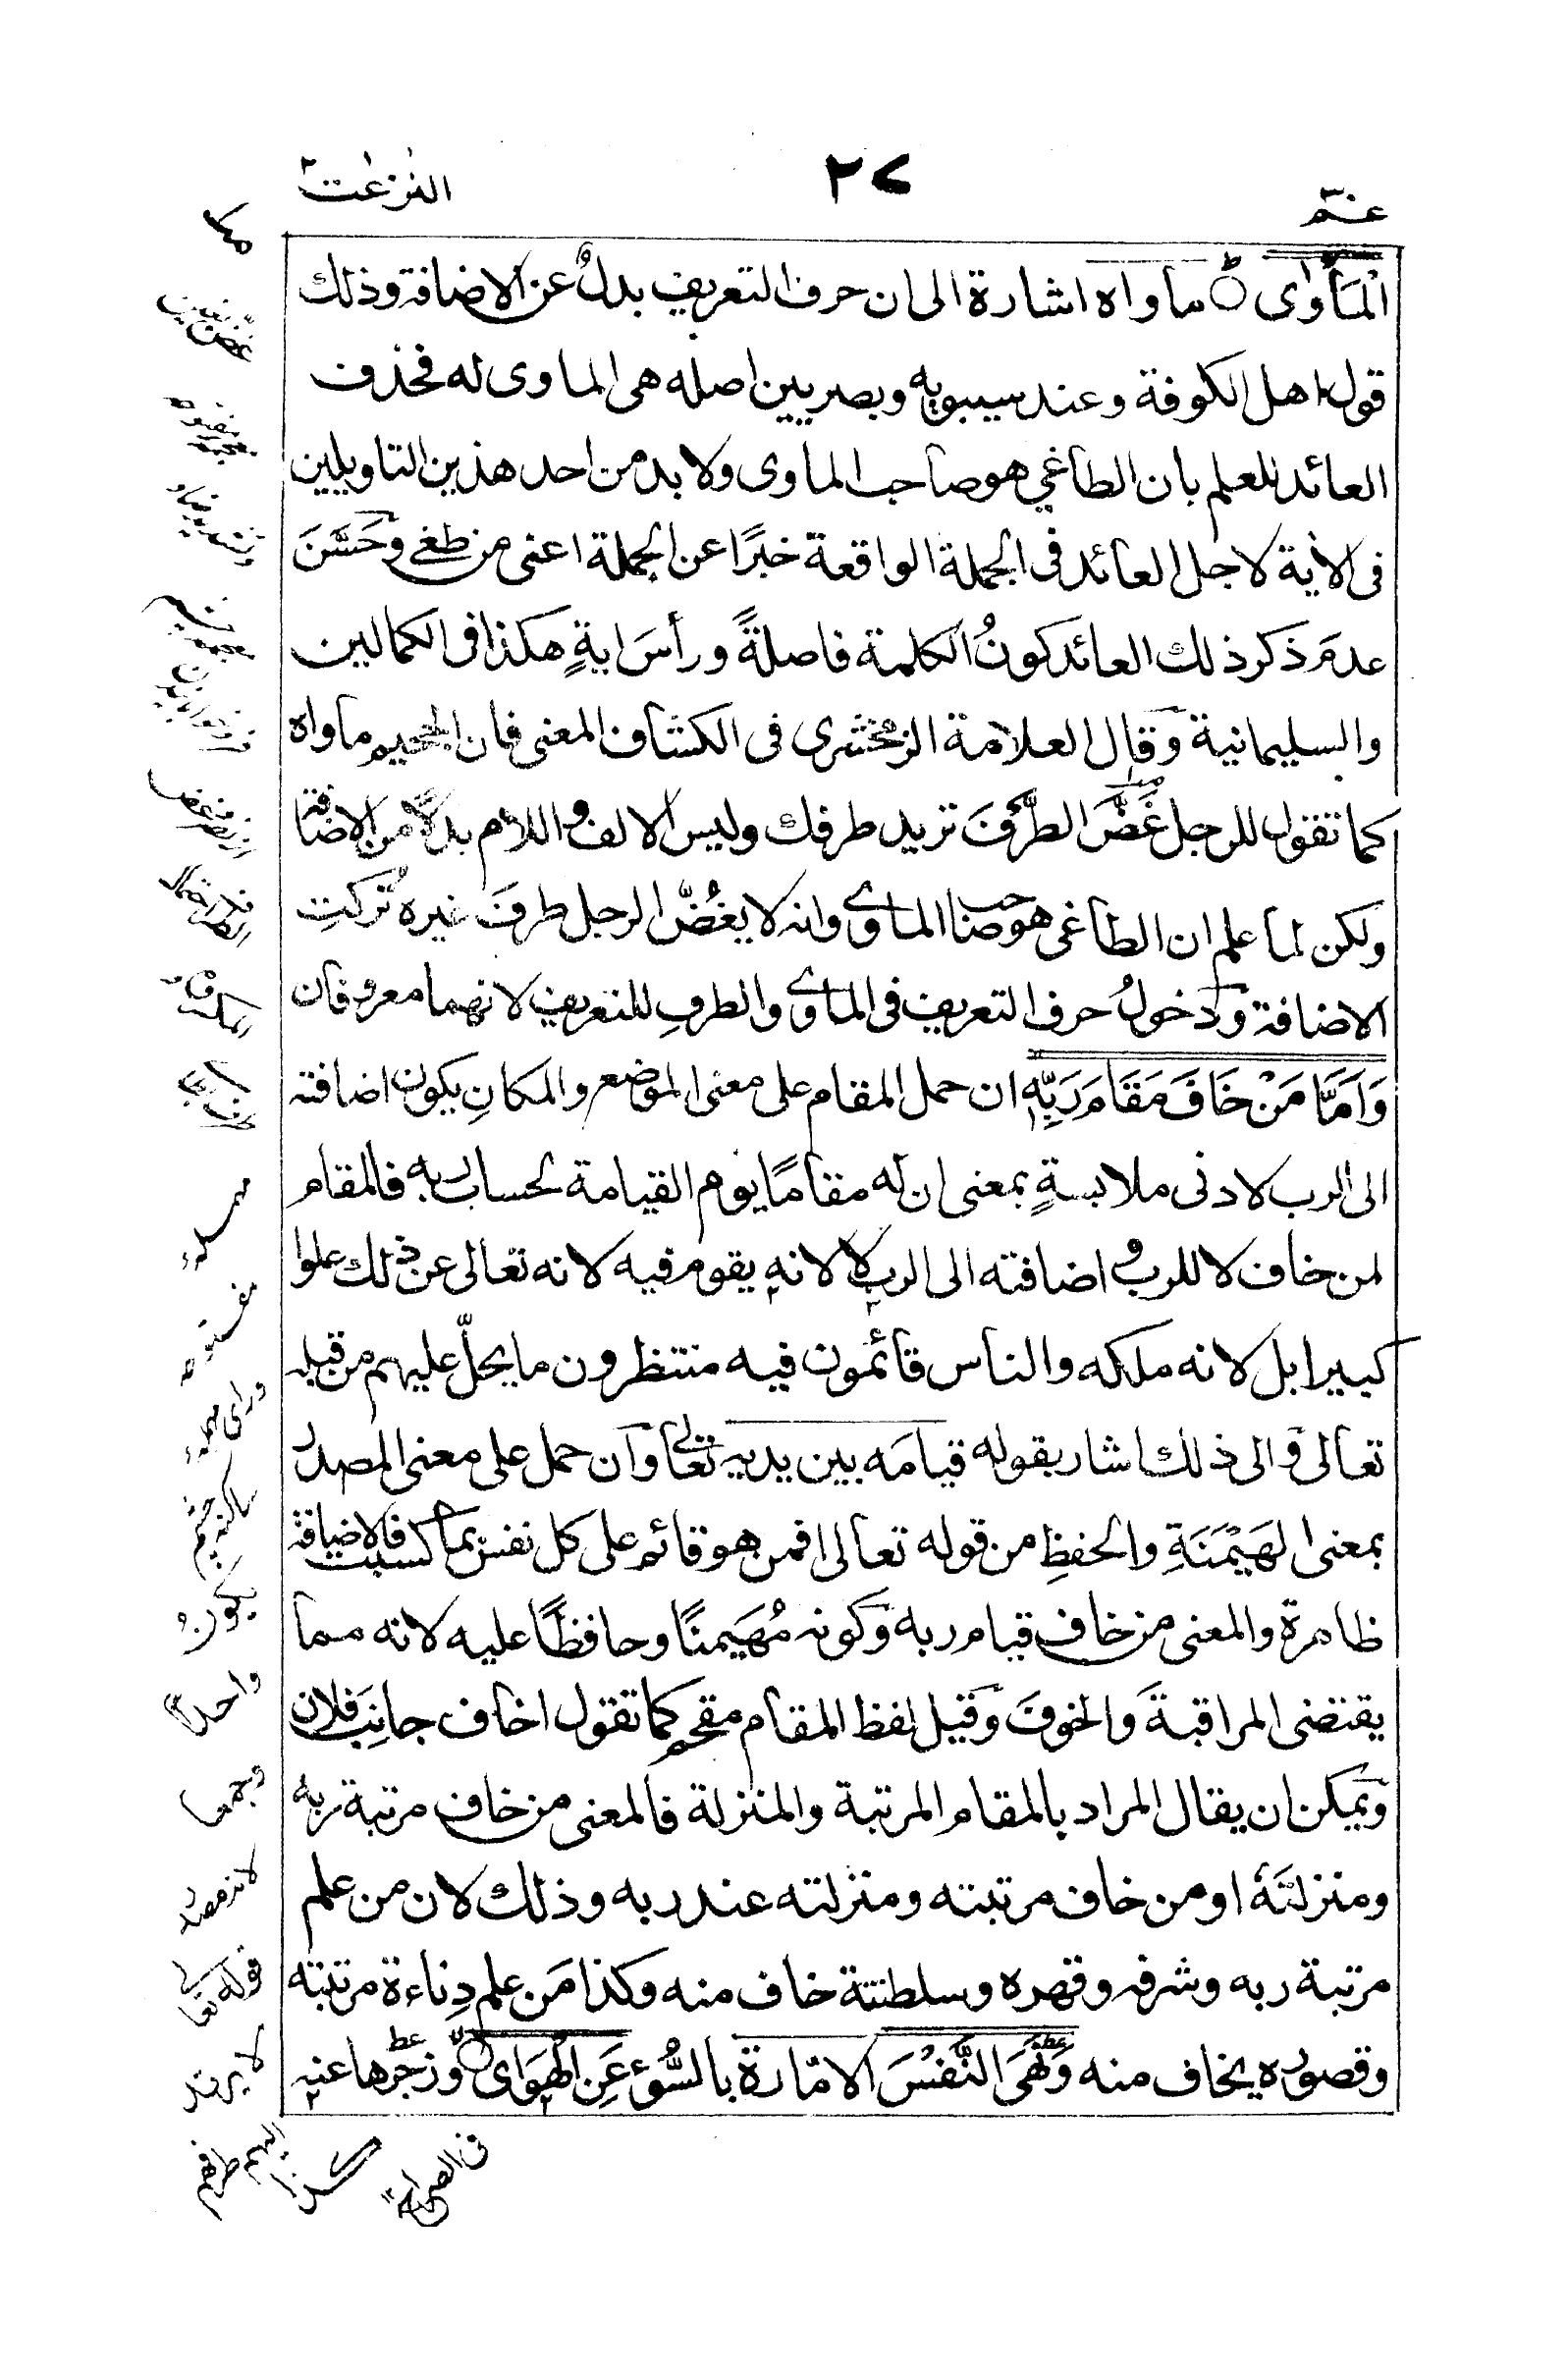 عـم
٢٧
النزعت
الْمَأْوٰى ماواه اشارة الى ان حرف التعريف بدلٌ عن الاضافة وذلك
قول اهل الكوفة وعند سيبويه وبصريين اصله هى الماوى له فحذف
العائد للعلم بان الطاغي هو صاحب الماوى ولا بد من احد هذين التاويلين
فى الأية لاجل العائد فى الجملة الواقعة خبرًا عن الجملة اعنى من طغے وحَسَّنَ
عدمَ ذكر ذلك العائد كونُ الكلمة فاصلةً ورأسَ ايةٍ هكذا فى الكمالين
والسليمانية وقال العلامة الزمخشرى فى الكشاف المعنى فان الجحيم ماواه
كما تقول للرجل غُضَّ الطَّرْفَ تريد طرفك وليس الالف واللام بدلًا من الاضافة
ولكن لما علم ان الطاغى هو صاحب الماوٰى وانه لا يغُضُّ الرجل طرفَ غيره تُركتِ
الاضافة ودخولُ حرف التعريف فى الماوٰى والطرفِ للتعريف لانهما معروفان
وَاَمَّا مَنْ خَافَ مَقَامَ رَبِّهٖ ان حمل المقام على معنى الموضع والمكانِ يكون اضافته
الى الرب لادنى ملابسةٍ بمعنى ان له مقامًا يوم القيامة لحساب ربه فالمقام
لمن خاف لا للرب و اضافته الى الرب لا لانه يقوم فيه لانه تعالى عن ذلك علوا
كبيرا بل لانه ملكه والناس قائمون فيه منتظرون ما يحلّ عليهم من قبله
تعالى والى ذلك اشار بقوله قيامَه بين يديه تعالٰى وان حمل على معنى المصدر
بمعنى الهَيْمَنَةِ والحفظِ من قوله تعالى افمن هو قائم على كل نفس بما كسبت فالاضافة
ظاهرة والمعنى من خاف قيام ربه وكونه مُهَيمنًا وحافظًا عليه لانه مما
يقتضى المراقبةَ والخوفَ وقيل لفظ المقام مقحم كما تقول اخاف جانِبَ فلان
ويمكن ان يقال المراد بالمقام المرتبة والمنزلة فالمعنى من خاف مرتبة ربه
ومنزلتَهٗ او من خاف مرتبته ومنزلته عند ربه وذلك لان من علم
مرتبة ربه وشرفه وقهره وسلطنته خاف منه وكذا مَن علم دِناءة مرتبته
وقصوره يخاف منه وَنَهَى النَّفْسَ الامّارة بالسُّوْءِ عَنِ الْهَوٰى وزجرها عنه
مهملة
مفتوحة
وراى مهملة
ساكنة ثم
يكون
واحدًا
وجمعا
لانه مصدر
قوله تعالى
لا يرتد
اليهم طرفهم
كذا
فى الصراح